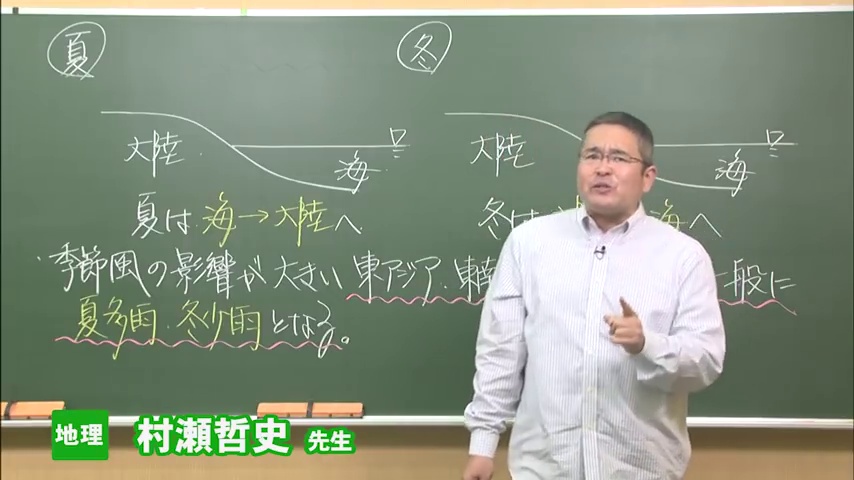 夏
冬
大陸 海
大陸 海
夏は 海→大陸へ
冬は 海へ
・季節風の影響が大きい東アジア・東南 一般に
夏多雨・冬少雨となる。
地理 村瀬哲史 先生